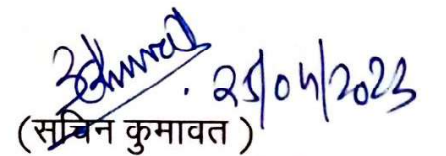 25/04/2023
(सचिन कुमावत )